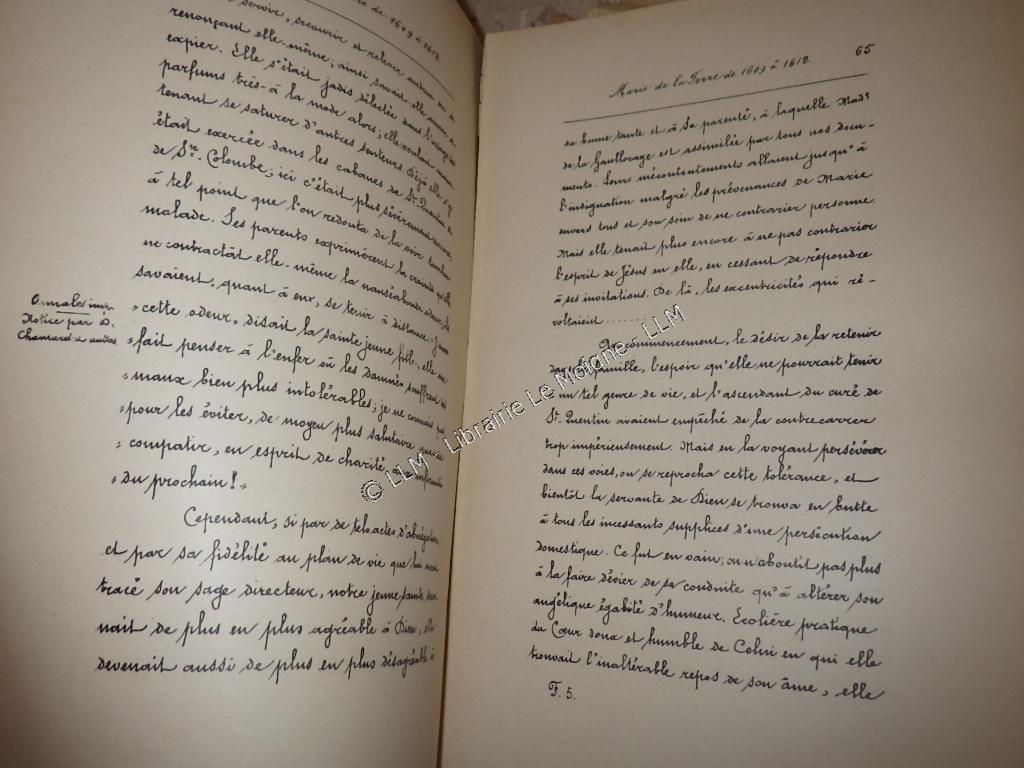 de 1609 à 1612
servir, secourir et retenir
renonçant elle-même; ainsi savait elle
expier. Elle s'était jadis délectée dans l'usage des
parfums très-à la mode alors; elle voulait
tenant se saturer d'autres senteurs. Déjà elle s'y
était exercée dans les cabanes de St. Quentin et
de Ste. Colombe; ici c'était plus sévèrement encore,
à tel point que l'on redouta de la voir tomber
malade. Ses parents exprimèrent la crainte qu'elle
ne contractât elle-même la nauséabonde
savaient, quant à eux, se tenir à distance.
« cette odeur, disait la sainte jeune fille, elle me
« fait penser à l'enfer où les damnés souffrent des
« maux bien plus intolérables; je ne connais pas,
« pour les éviter, de moyen plus salutaire que de
« compatir, en esprit de charité, aux infirmités
« du prochain! »
Cependant, si par de tels actes d'abnégation,
et par sa fidélité au plan de vie que lui avait
tracé son sage directeur, notre jeune sainte
nait de plus en plus agréable à Dieu, elle
devenait aussi de plus en plus désagréable à
Notice par D.
Chamard et autres
65
Marie de la Terre de 1609 à 1612.
sa bonne tante et à sa parenté, à laquelle Made
de la Gaulloraye est assimilée par tous nos docu-
ments. Leurs mécontentements allaient jusqu'à
l'indignation malgré les prévenances de Marie
envers tous et son soin de ne contrarier personne.
Mais elle tenait plus encore à ne pas contrarier
l'esprit de Jésus en elle, en cessant de répondre
à ses invitations. De là, les excentricités qui ré-
voltaient.......
Au commencement, le désir de la retenir
dans la famille, l'espoir qu'elle ne pourrait tenir
un tel genre de vie, et l'ascendant du curé de
St. Quentin avaient empêché de la contrecarrer
trop impérieusement. Mais en la voyant persévérer
dans ces voies, on se reprocha cette tolérance, et
bientôt la servante de Dieu se trouva en butte
à tous les incessants supplices d'une persécution
domestique. Ce fut en vain; on n'aboutit pas plus
à la faire dévier de sa conduite qu'à altérer son
angélique égalité d'humeur. Ecolière pratique
du Cœur doux et humble de Celui en qui elle
trouvait l'inaltérable repos de son âme, elle
F. 5.
© LLM - Librairie Le Moigne - LLM